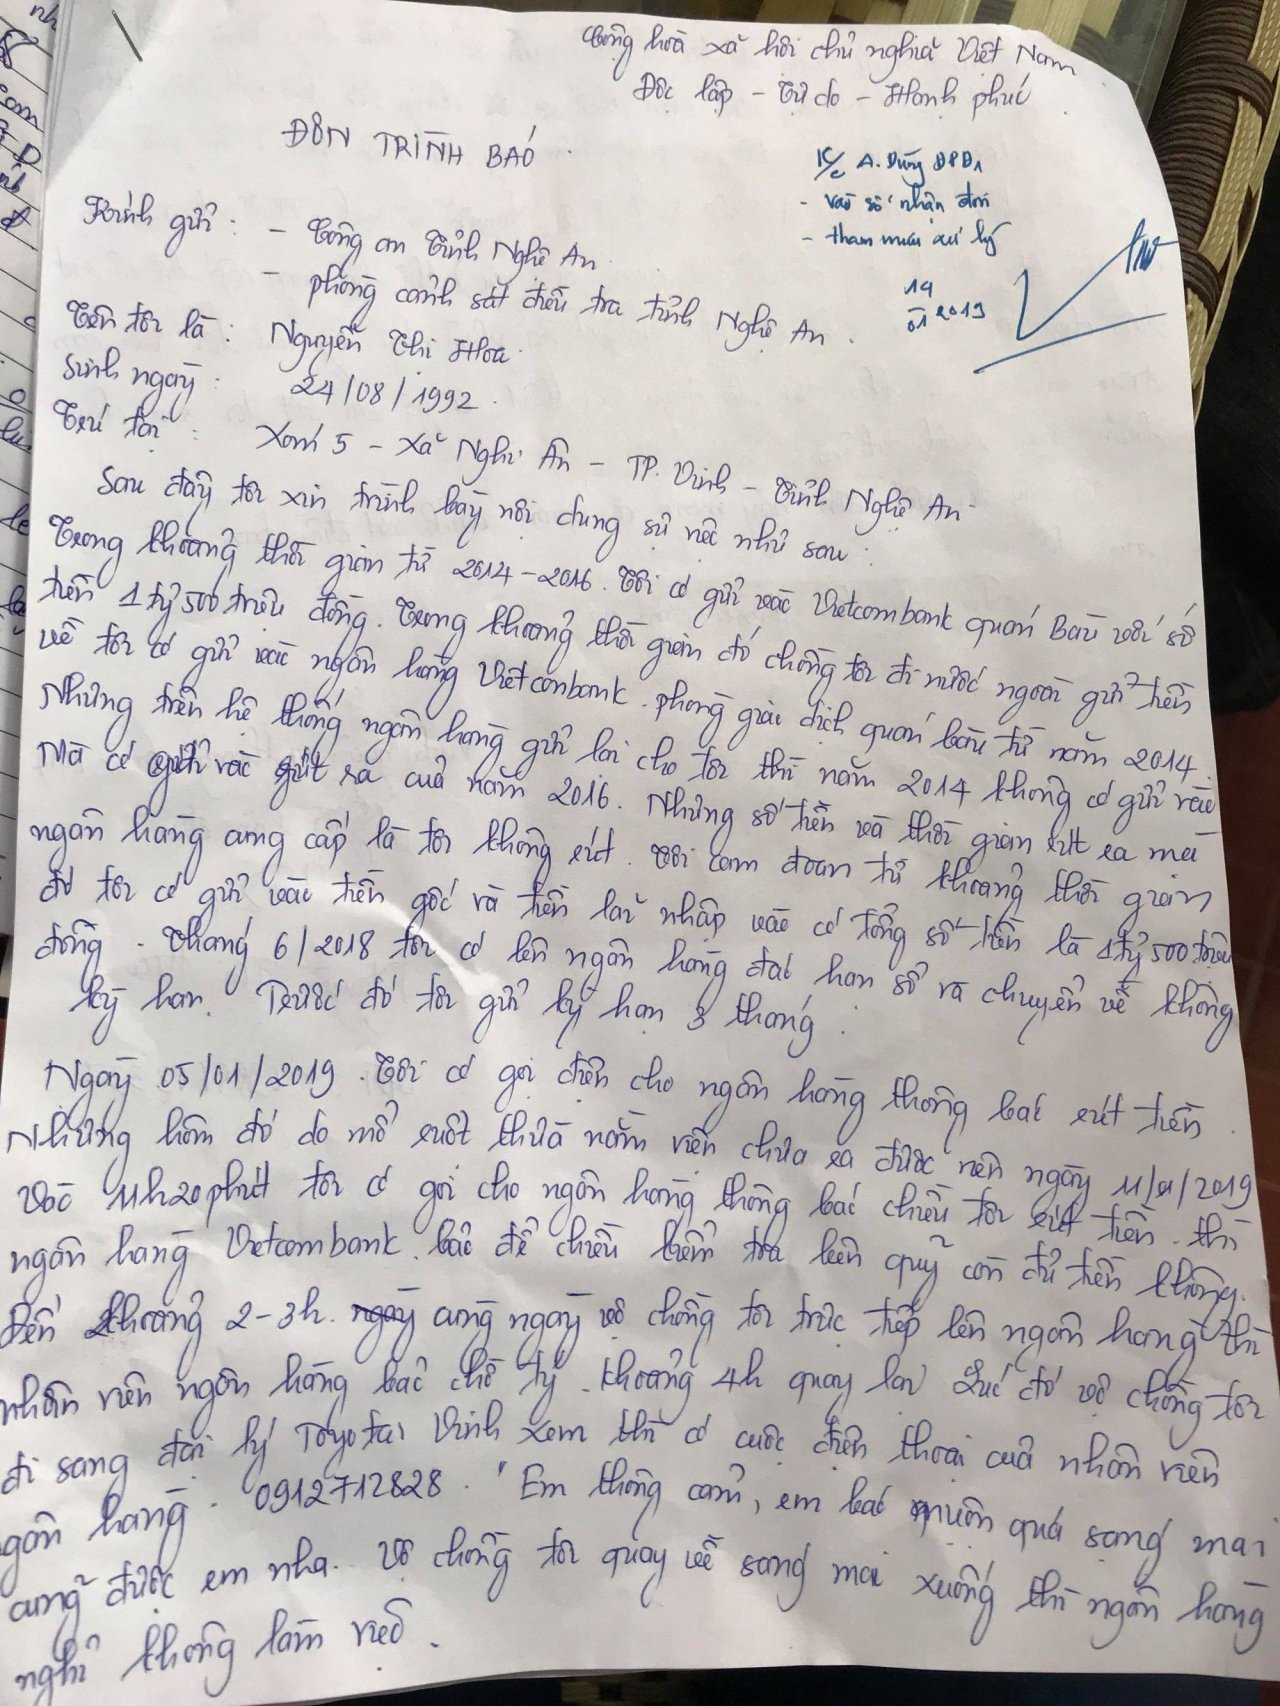 Cộng hoà xã hội chủ nghĩa Việt Nam
Độc lập - Tự do - Hạnh phúc
ĐƠN TRÌNH BÁO
K/c A. Dũng ĐPD1
- vào sổ nhận đơn
- tham mưu xử lý
14
01 2019
Kính gửi: - Công an Tỉnh Nghệ An
- phòng cảnh sát điều tra tỉnh Nghệ An.
Tên tôi là: Nguyễn Thị Hoa
Sinh ngày: 24/08/1992.
Trú tại: Xóm 5 - Xã Nghi Ân - TP. Vinh - Tỉnh Nghệ An
Sau đây tôi xin trình bày nội dung sự việc như sau:
Trong khoảng thời gian từ 2014-2016. Tôi có gửi vào Vietcombank quán Bàu với số
tiền 1 tỷ 500 triệu đồng. Trong khoảng thời gian đó chồng tôi đi nước ngoài gửi tiền
về tôi có gửi vào ngân hàng Vietconbank. phòng giao dịch quán bàu từ năm 2014.
Nhưng trên hệ thống ngân hàng gửi lại cho tôi thì năm 2014 không có gửi vào
Mà có gửi vào rút ra của năm 2016. Nhưng số tiền và thời gian rút ra mà
ngân hàng cung cấp là tôi không rút. Tôi cam đoan từ khoảng thời gian
đó tôi có gửi vào tiền gốc và tiền lãi nhập vào có tổng số tiền là 1 tỷ 500 triệu
đồng. Tháng 6/2018 tôi có lên ngân hàng đáo hạn sổ và chuyển về không
kỳ hạn. Trước đó tôi gửi kỳ hạn 3 tháng.
Ngày 05/01/2019. Tôi có gọi điện cho ngân hàng thông báo rút tiền.
Nhưng hôm đó do mổ ruột thừa nằm viện chưa ra được nên ngày 11/01/2019
Vào 11h20phút tôi có gọi cho ngân hàng thông báo chiều tôi rút tiền. thì
ngân hàng Vietcombank. bảo để chiều kiểm tra bên quỹ còn đủ tiền không.
Đến khoảng 2-3h. cùng ngày vợ chồng tôi trực tiếp lên ngân hàng thì
nhân viên ngân hàng bảo chờ tý. khoảng 4h quay lại Lúc đó vợ chồng tôi
đi sang đại lý Toyota Vinh xem thì có cuộc điện thoại của nhân viên
ngân hàng. 0912712828. "Em thông cảm, em báo muộn quá sang mai
cũng được em nha. Vợ chồng tôi quay về sang mai xuống thì ngân hàng
nghỉ không làm việc.